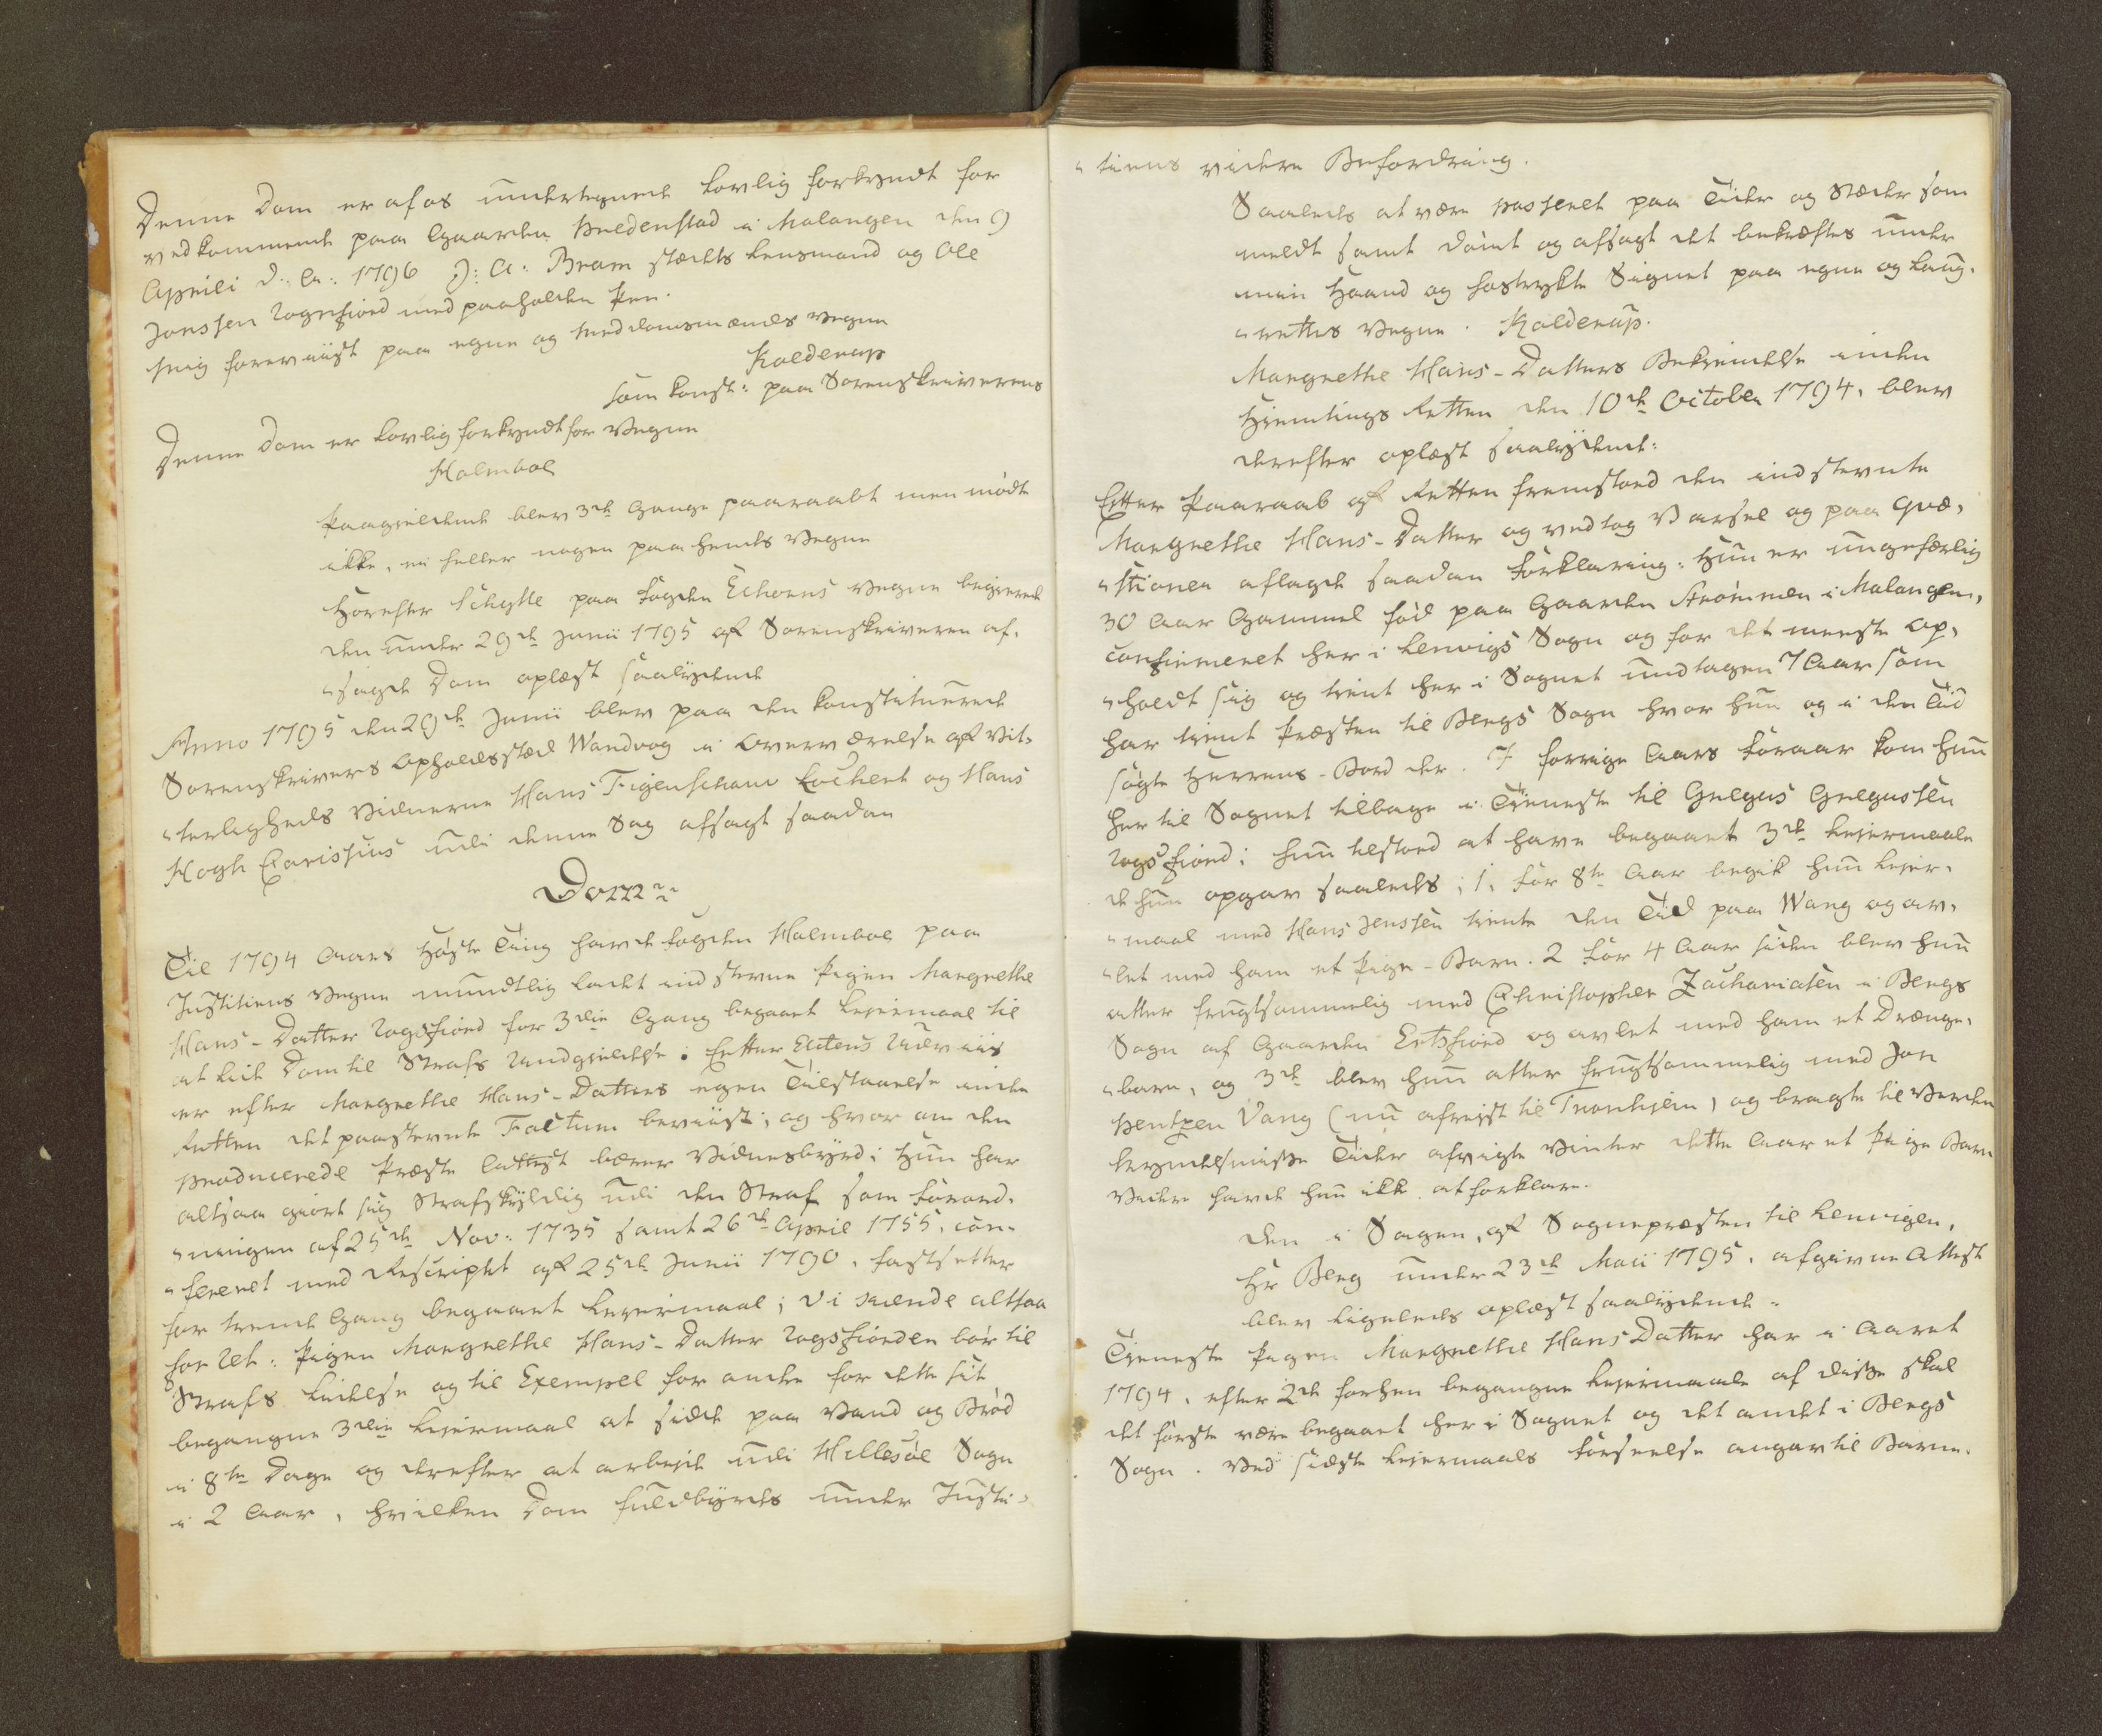 Denne Dom er af os undertegnede lovlig forkyndt for
vedkommende paa Gaarden Heldenstad i Malangen den 9
Aprili d: a: 1796 J: A: Bram stædets Lensmand og Ole
Jonssen Rognfiord med paaholden Pen.
Mig foreviist paa egne og Meddomsmænds Vegne
Kolderup
som konst: paa Sorenskriverens
Denne Dom er lovlig forkyndt for Vegne
Holmboe
Paagieldende blev 3de Gange paaraabt men mødte
ikke, ei heller nogen paa hendes Vegne
Hvorefter Schytte paa Fogden Echoens Vegne begierede
den under 29de Junii 1795 af Sorenskriveren af-
"sagde Dom oplæst saalydende
Anno 1795 den 29de Junii blev paa den konstituerede
Sorenskrivers Opholdsstæd Wandvog i Overværelse af Vit-
"terligheds Vidnerne Hans Figenschau Lochert og Hans
Hogh Carissius udi denne Sag afsagt saadan
Dom
Til 1794 Aars Høste Ting havde Fogden Holmboe paa
Justitiens Vegne mundtlig ladet indstevne Pigen Margrethe
Hans-Datter Rogsfiord for 3die Gang begaaet Leiermaal til
at lide Dom til Strafs Undgieldelse. Efter Actens Udviis
er efter Margrethe Hans-Datters egen Tilstaaelse inden
Retten det paastevnte Factum beviist; og hvor om den
producerede Præste Attest bærer Vidnesbyrd; Hun har
altsaa giort sig Strafskyldig udi den Straf som Forord-
"ningen af 25de Nov: 1735 samt 26de April 1755, con-
"fereret med Rescript af 25de Junii 1790, fastsetter
for trende Gang begaaet Leyermaal; Vi kiende altsaa
for Ret: Pigen Margrethe Hans-Datter Rogsfiorden bør til
Strafs Lidelse og til Exempel for andre for dette sit
begangne 3die Leiermaal at sidde paa Vand og Brød
i 8te Dage og derefter at arbejde udi Hillesøe Sogn
i 2 Aar, hvilken Dom fuldbyrdes under Justi-
"tiens videre Befordring.
Saaledes at være passeret paa Tider og Stæder som
meldt samt dømt og afsagt det bekræftes under
min Haand og hostrykte Signet paa egne og Laug-
"rettes Vegne. Kolderup.
Margrethe Hans-Datters Bekiendelse inden
Hiemtings Retten den 10de October 1794, blev
derefter oplæst saalydende:
Efter Paaraab af Retten fremstoed den indstevnte
Margrethe Hans-Datter og vedtog Varsel og paa Qvæ-
"stionen aflagde saadan Forklaring: Hun er ungefærlig
30 Aar Gammel fød paa Gaarden Strømmen i Malangen,
confirmeret her i Lenvigs Sogn og for det meeste op-
"holdt sig og tient her i Sognet undtagen 7 Aar som
har tient Præsten til Bergs Sogn hvor hun og i den Tid
søgte Herrens-Bord der. I forrige Aars Foraar kom hun
her til Sognet tilbage i Tieneste til Gregus Gregussen
Rogsfiord; hun tilstoed at have begaaet 3de Leiermaale
de hun opgav saaledes; 1, For 8te Aar begik hun Leier-
"maal med Hans Jenssen tiente den Tid paa Wang og av-
"let med ham et Pige-Barn. 2 For 4 Aar siden blev hun
atter frugtsommelig med Christopher Zachariasen i Bergs
Sogn af Gaarden Ertsfiord og avlet med ham et Drænge-
"barn, og 3de blev hun atter frugtsommelig med Jon
Pentzen Vang (nu afreist til Tronhjem) og bragte til Verden
Kyndelsmisse Tider afvigte Vinter dette Aar et Pige Barn
Videre havde hun ikke at forklare.
Den i Sagen, af Sognepræsten til Lenvigen,
Hr Berg under 23de Maii 1795, afgivne Attest
blev ligeledes oplæst saalydende.
Tieneste Pigen Margrethe Hans Datter har i Aaret
1794, efter 2de forhen begangne Leiermaale af disse skal
det første være begaaet her i Sognet og det andet i Bergs
Sogn. Ved sidste Leiermaals Forseelse angav til Barne-